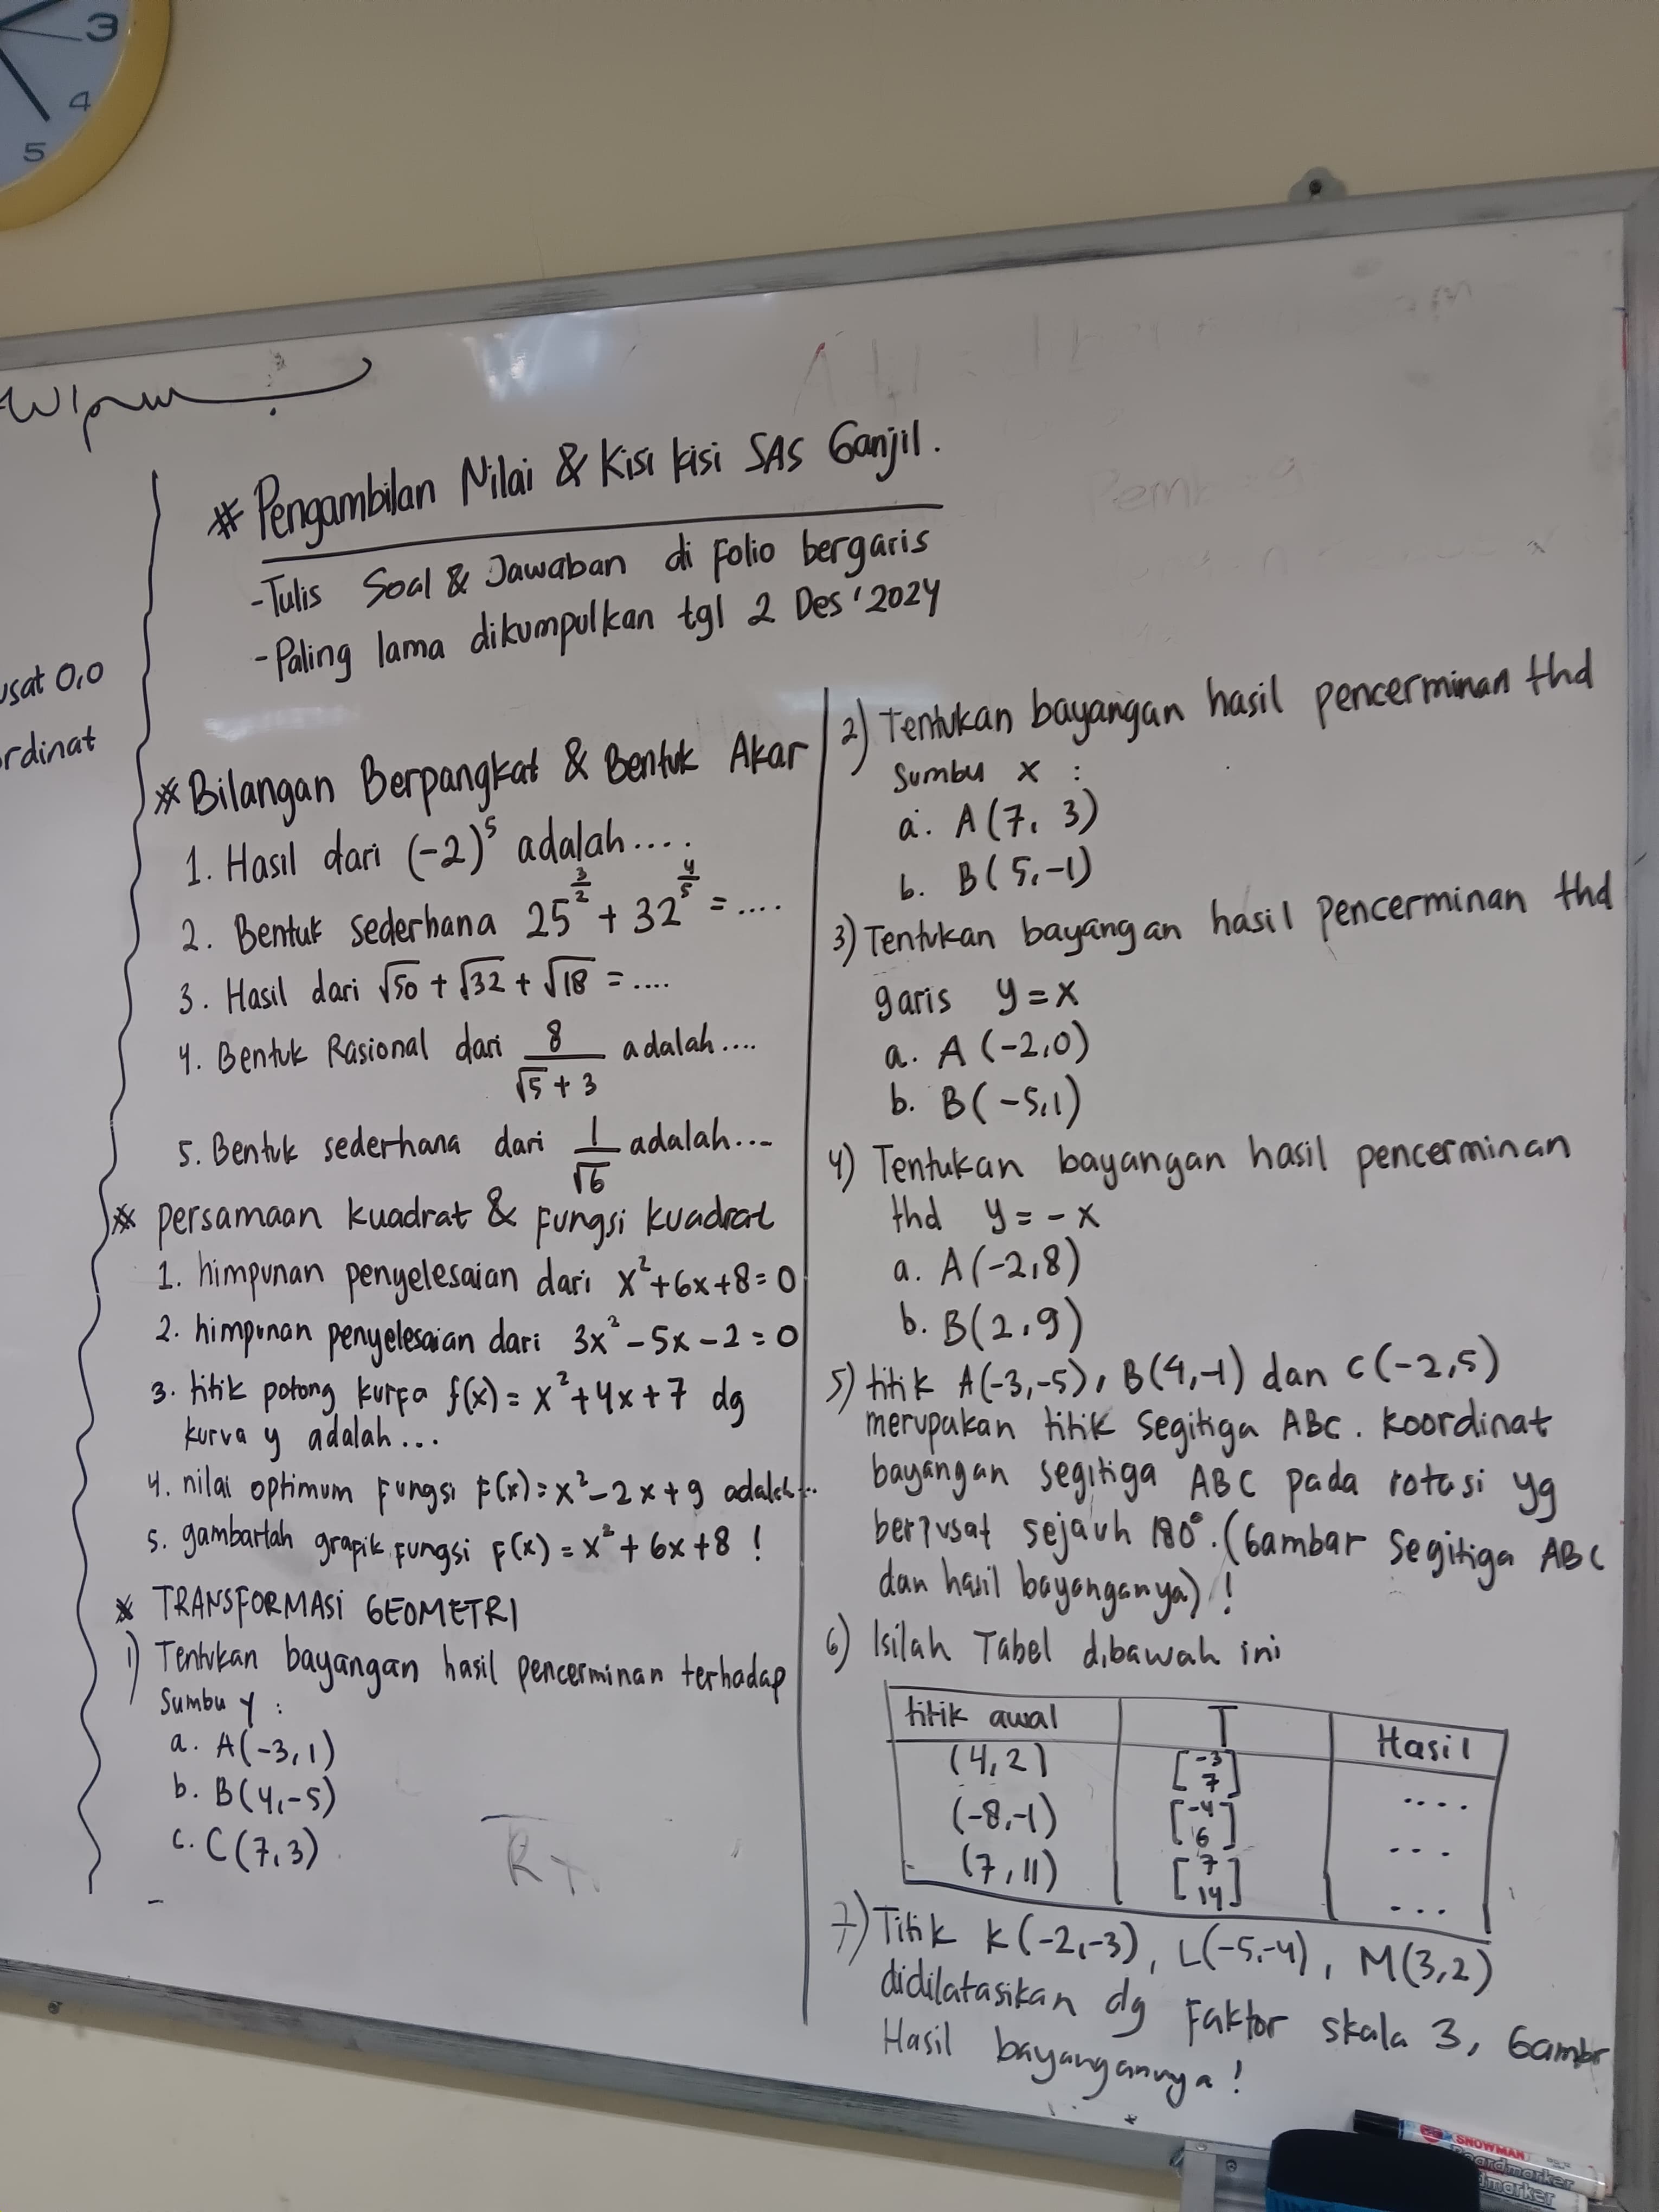 3
4
5
usat 0,0
rdinat
* Pengambilan Nilai & Kisi kisi SAS Ganjil.
-Tulis Soal & Jawaban di Folio bergaris
-Paling lama dikumpulkan tgl 2 Des '2024
* Bilangan Berpangkat & Bentuk Akar
1. Hasil dari (-2)⁵ adalah....
2. Bentuk sederhana 25^(3/2) + 32^(4/5) = ....
3. Hasil dari √50 + √32 + √18 = ....
4. Bentuk Rasional dari 8/(√5 + 3) adalah....
5. Bentuk sederhana dari 1/√6 adalah...
* persamaan kuadrat & Fungsi kuadrat
1. himpunan penyelesaian dari x²+6x+8=0
2. himpunan penyelesaian dari 3x²-5x-2=0
3. titik potong kurfa f(x) = x²+4x+7 dg
kurva y adalah...
4. nilai optimum Fungsi F(x)=x²-2x+9 adalah...
5. gambarlah grafik Fungsi F(x) = x²+6x+8 !
* TRANSFORMASI GEOMETRI
1) Tentukan bayangan hasil pencerminan terhadap
Sumbu y :
a. A(-3,1)
b. B(4,-5)
c. C(7,3)
2) Tentukan bayangan hasil pencerminan thd
Sumbu x :
a. A(7, 3)
b. B(5,-1)
3) Tentukan bayangan hasil pencerminan thd
garis y=x
a. A(-2,0)
b. B(-5,1)
4) Tentukan bayangan hasil pencerminan
thd y=-x
a. A(-2,8)
b. B(2,9)
5) titik A(-3,-5), B(4,-1) dan C(-2,5)
merupakan titik Segitiga ABC. Koordinat
bayangan segitiga ABC pada rotasi yg
berpusat sejauh 180°. (Gambar Segitiga ABC
dan hasil bayanganya) !
6) Isilah Tabel dibawah ini
titik awal T Hasil
(4,2) [-3 7] ....
(-8,-1) [-4 6] ...
(7,11) [7 14] ...
7) Titik K(-2,-3), L(-5,-4), M(3,2)
didilatasikan dg Faktor skala 3, Gambr
Hasil bayangannya !
SNOWMAN
Boardmarker